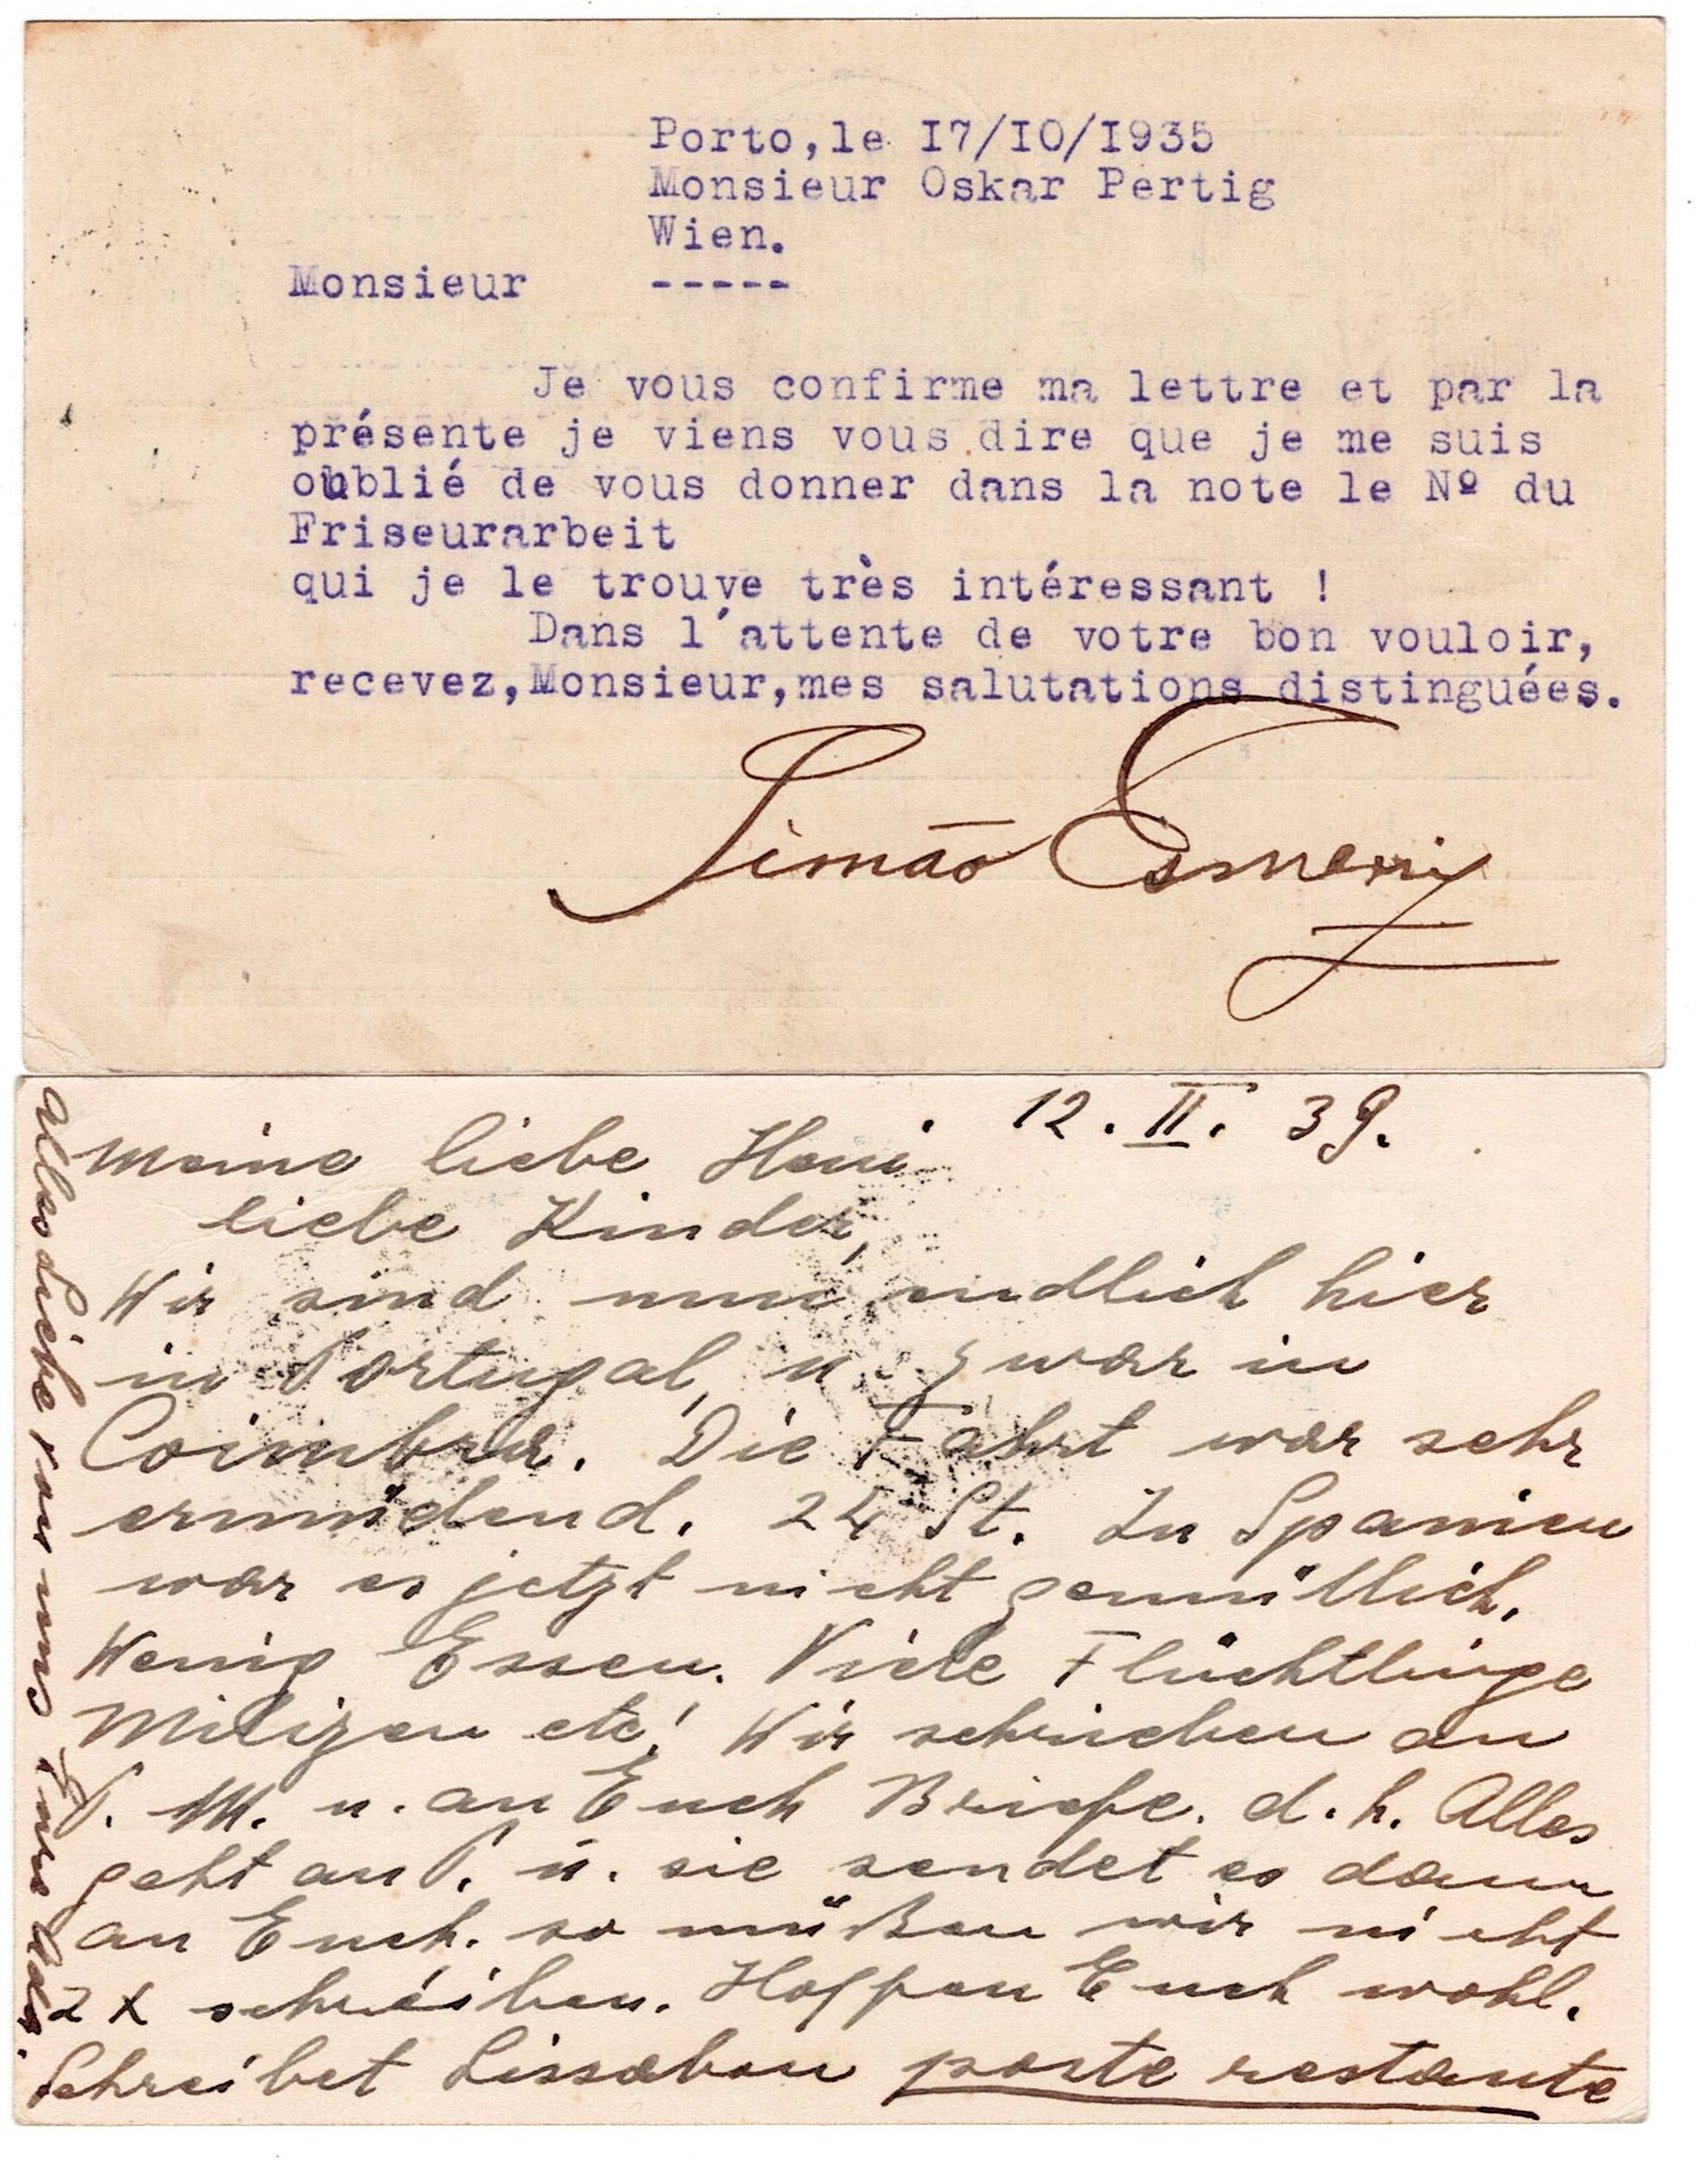 Porto,le I7/IO/I935
Monsieur Oskar Pertig
Wien.
Monsieur -----
Je vous confirme ma lettre et par la
présente je viens vous dire que je me suis
oublié de vous donner dans la note le Nº du
Friseurarbeit
qui je le trouve très intéressant !
Dans l'attente de votre bon vouloir,
recevez,Monsieur,mes salutations distinguées.
Simão
12. II. 39.
Meine liebe
liebe Kinder,
Wir sind nun endlich hier
in Portugal, u. zwar in
Coimbra. Die Fahrt war sehr
ermüdend. 24 St. In Spanien
war es jetzt nicht gemütlich.
Wenig Essen. Viele Flüchtlinge
Milizen etc! Wir schrieben an
P. M. u. an Euch Briefe. d. h. Alles
geht an P. u. sie sendet es dann
an Euch. so müßen wir nicht
2 x schreiben. Hoffen Euch wohl.
Schreibet Lissabon poste restante
alles Liebe von uns Eure